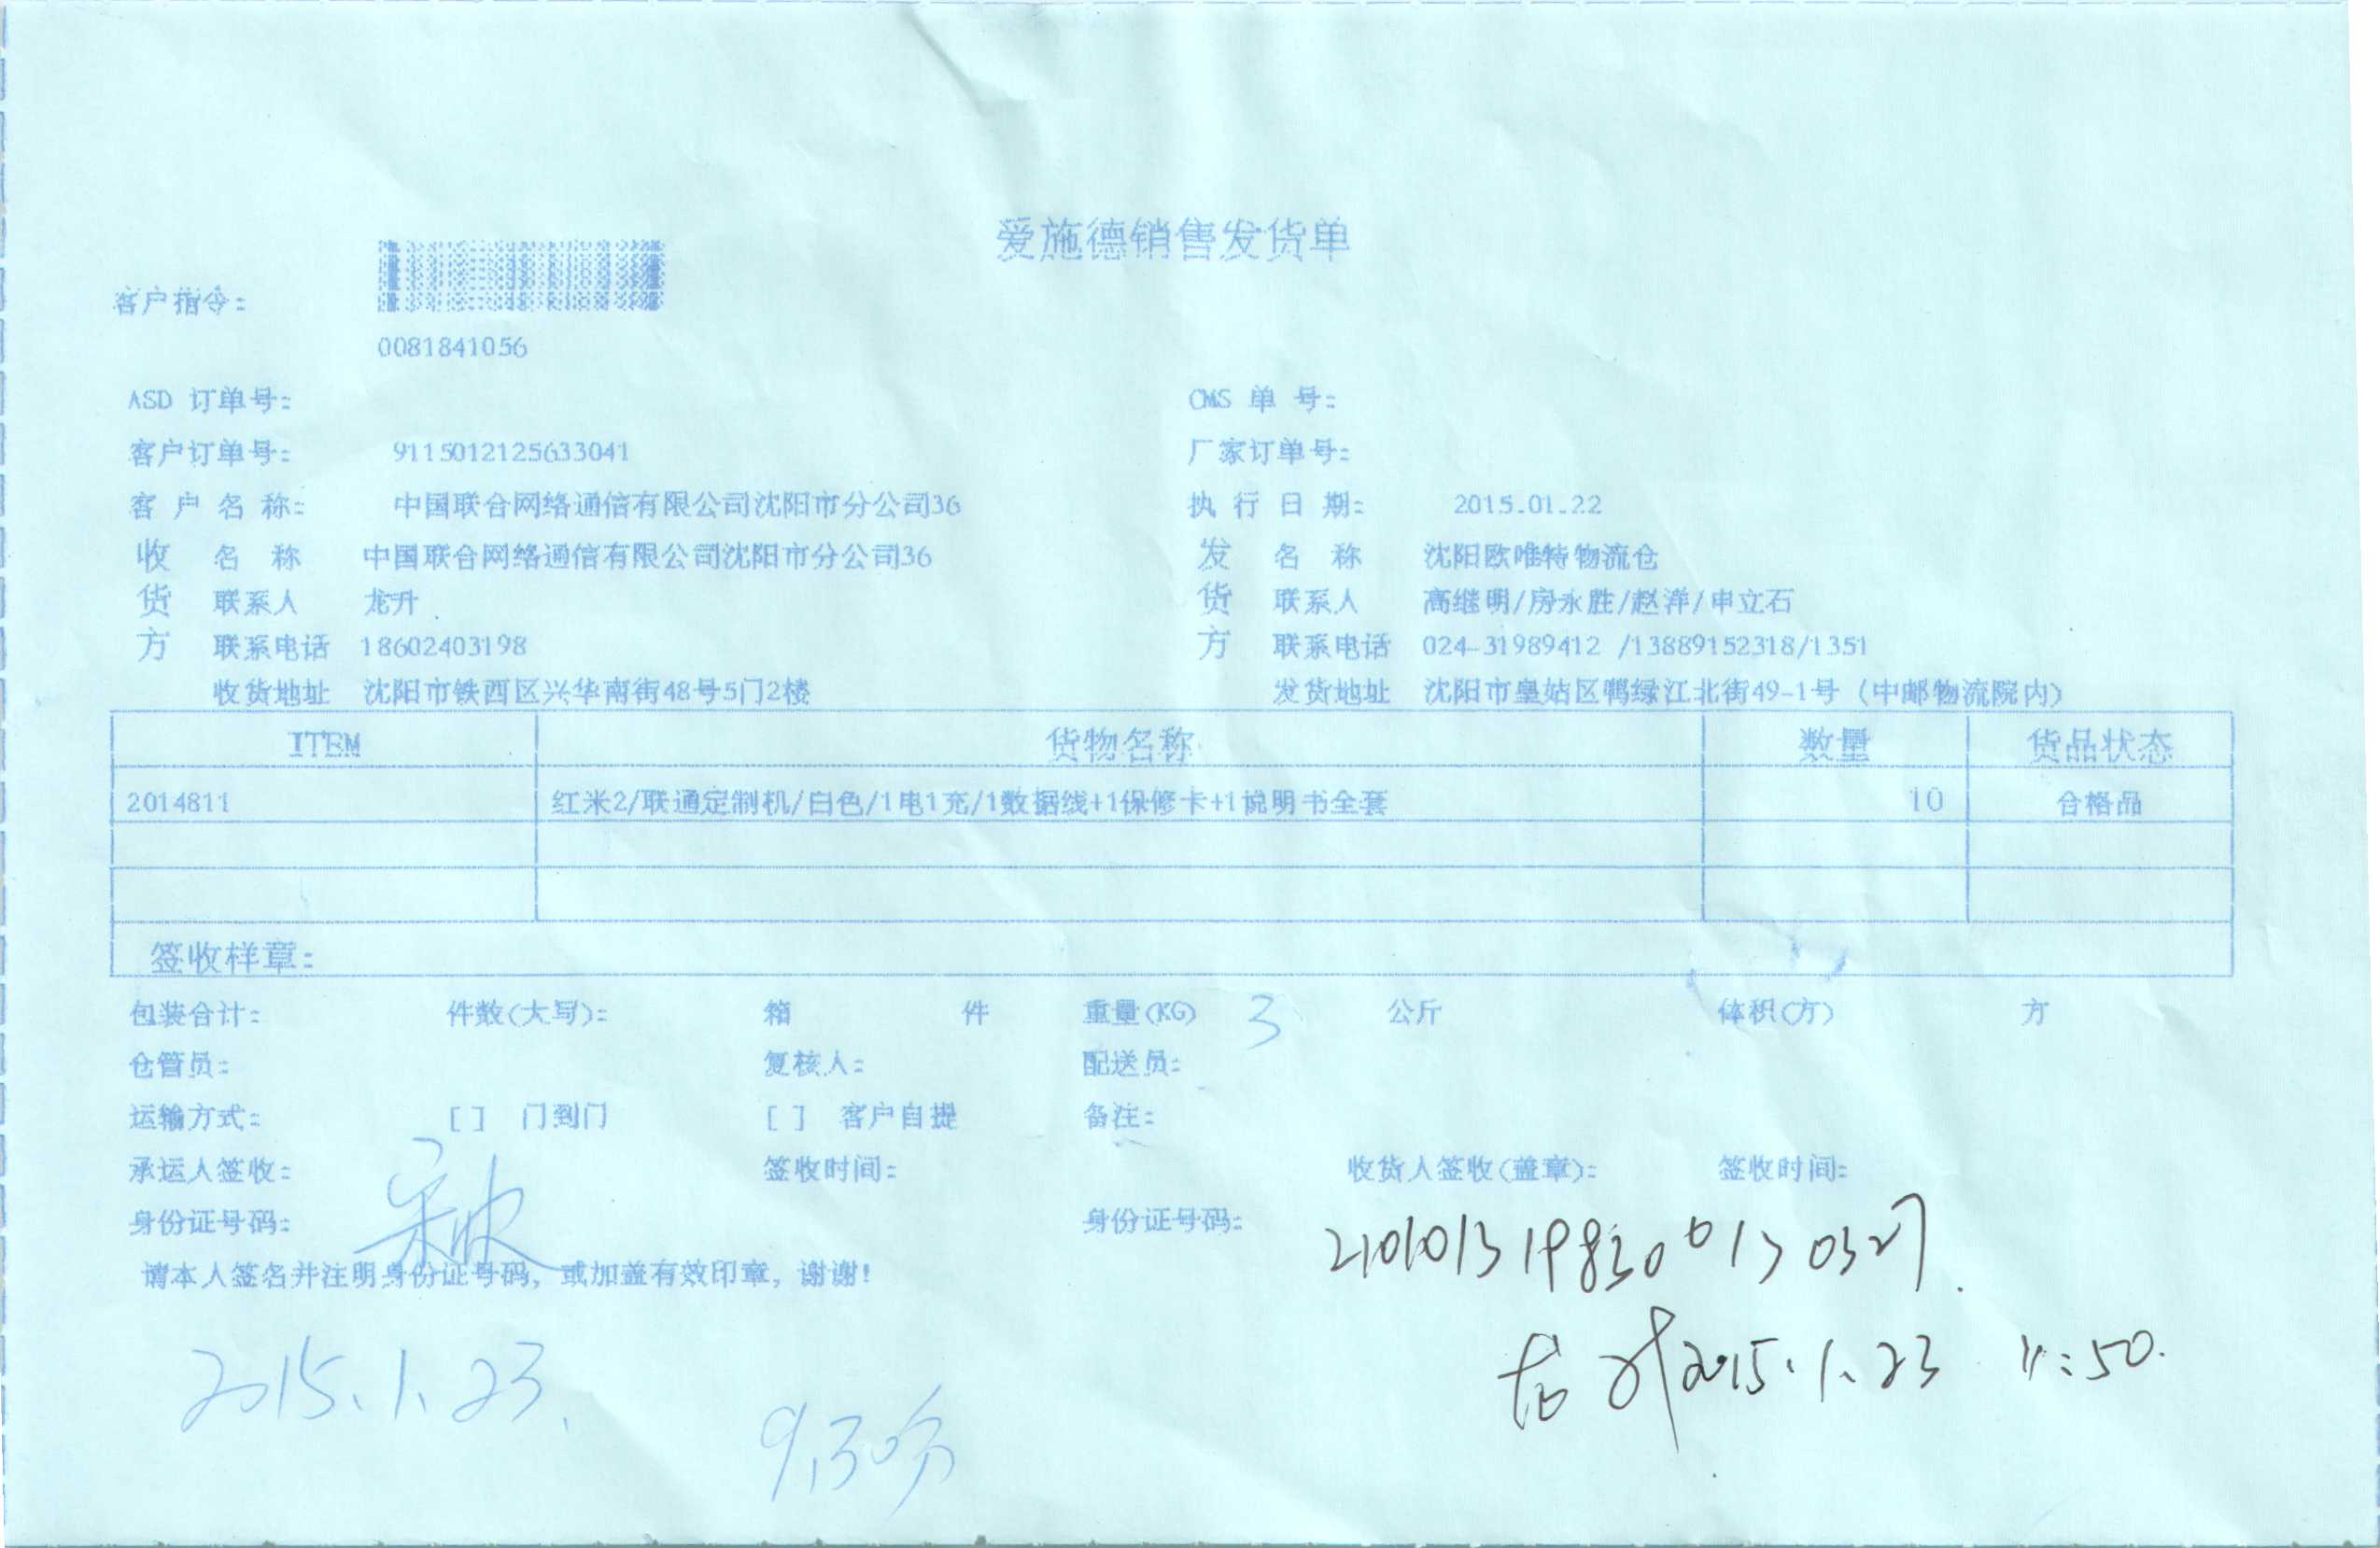 爱施德销售发货单
客户指令:
0081841056
ASD 订单号: CMS 单 号:
客户订单号: 9115012125633041 厂家订单号:
客 户 名 称: 中国联合网络通信有限公司沈阳市分公司36 执 行 日 期: 2015.01.22
收 名 称 中国联合网络通信有限公司沈阳市分公司36 发 名 称 沈阳欧唯特物流仓
货 联系人 龙升 货 联系人 高继明/房永胜/赵洋/申立石
方 联系电话 18602403198 方 联系电话 024-31989412 /13889152318/1351
收货地址 沈阳市铁西区兴华南街48号5门2楼 发货地址 沈阳市皇姑区鸭绿江北街49-1号 (中邮物流院内)
ITEM 货物名称 数量 货品状态
2014811 红米2/联通定制机/白色/1电1充/1数据线+1保修卡+1说明书全套 10 合格品
签收样章:
包装合计: 件数(大写): 箱 件 重量(KG) 3 公斤 体积(方) 方
仓管员: 复核人: 配送员:
运输方式: [ ] 门到门 [ ] 客户自提 备注:
承运人签收: 签收时间: 收货人签收(盖章): 签收时间:
身份证号码: 身份证号码:
请本人签名并注明身份证号码, 或加盖有效印章, 谢谢!
2015.1.23 11:50.
2015.1.23.
9,30分